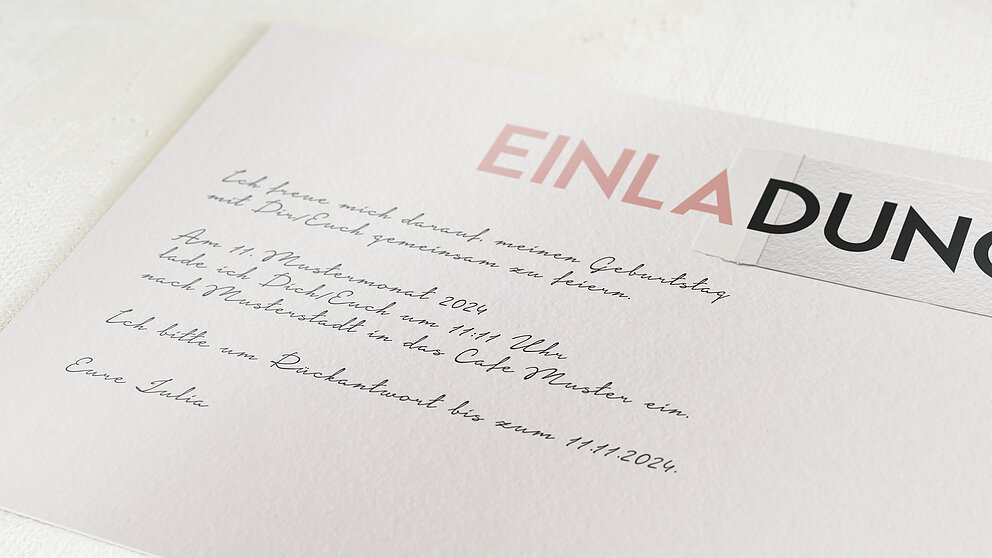 EINLADUNG
Ich freue mich darauf, meinen Geburtstag
mit Dir/Euch gemeinsam zu feiern.
Am 11. Mustermonat 2024
lade ich Dich/Euch um 11:11 Uhr
nach Musterstadt in das Cafe Muster ein.
Ich bitte um Rückantwort bis zum 11.11.2024.
Eure Julia